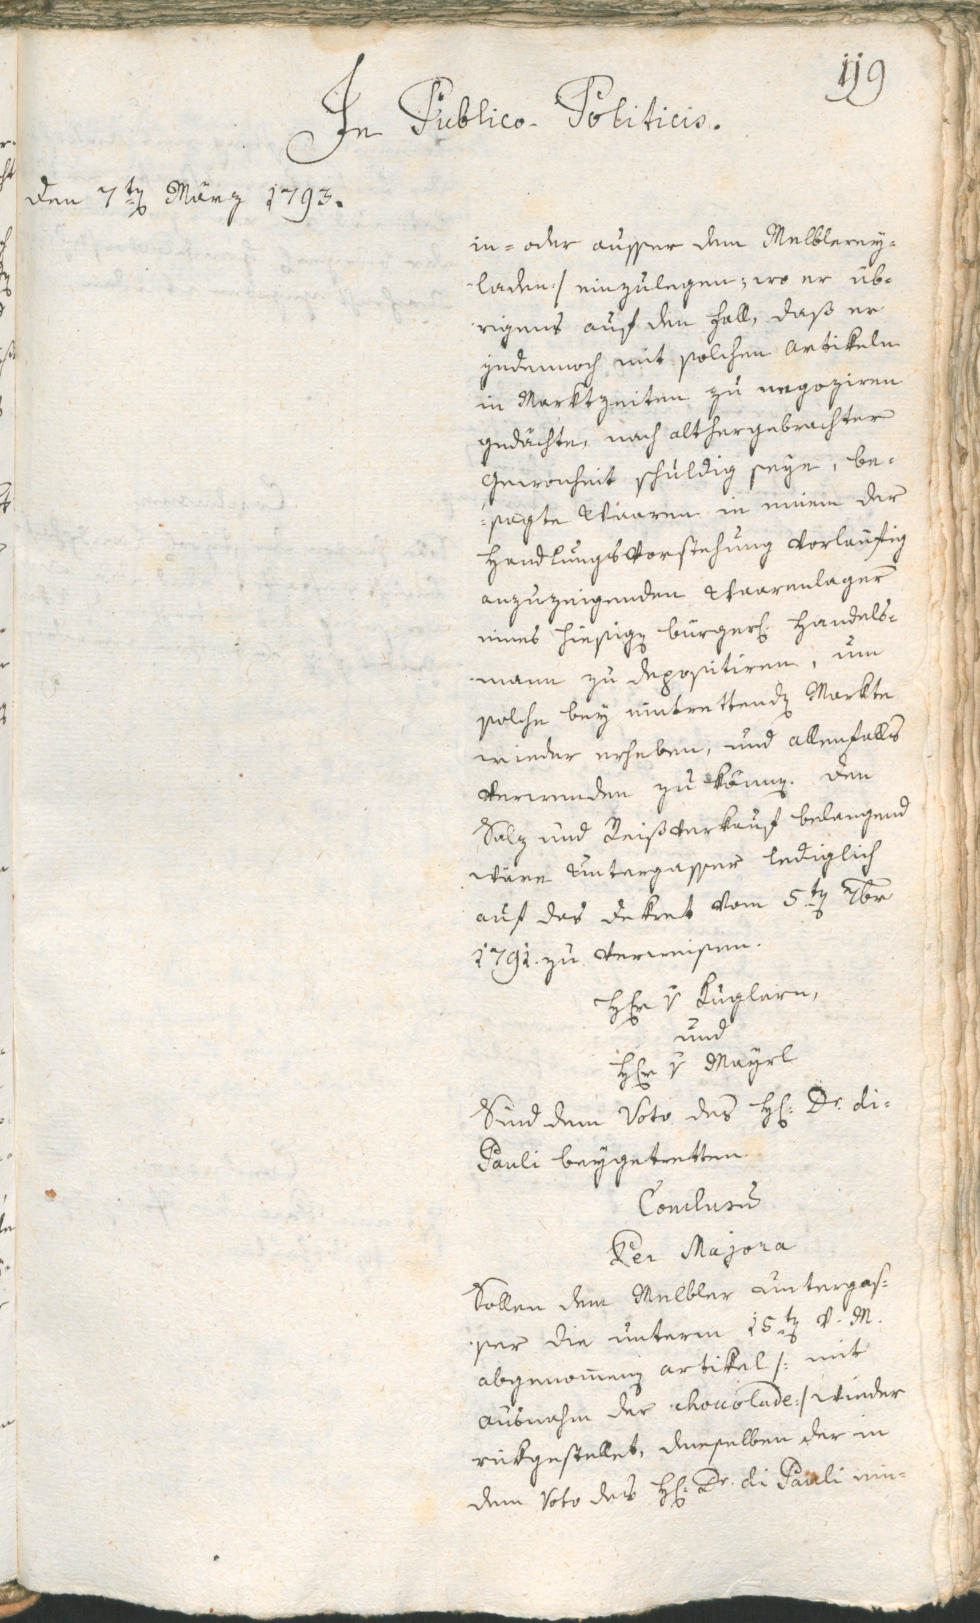 119
In Publico-Politicis.
den 7ten März 1793.
in- oder ausser dem Melblerey-
laden:/ einzulegen; wo er üb-
rigens auf den Fall, daß er
jedennoch mit solchen Artikeln
in Marktzeiten zu negoziren
gedächte, nach althergebrachter
Gewonheit schuldig seye, be-
sagte Waaren in einem der
Handlungsvorstehung vorläufig
anzuzeigenden Waarenlager
eines hiesigen bürgerl: Handels-
mann zu depositiren, um
solche bey eintrettenden Markte
wieder erheben, und allenfalls
verwenden zu können. Den
Salz und Reißverkauf belangend
wäre Untergasser lediglich
auf das Dekret vom 5ten 7br
1791. zu verweisen.
Herr v Kuglern,
und
Herr v Mayrl
Sind dem Voto des H: Dr. di-
Pauli beygetretten.
Conclusum
Per Majora
Sollen dem Melbler Untergas-
ser die unterm 15ten v. M.
abgenommenen Artikel /: mit
Ausnahm der Chocolade:/ wieder
rükgestellet, denselben der in
dem Voto des H: Dr. di Pauli ein-